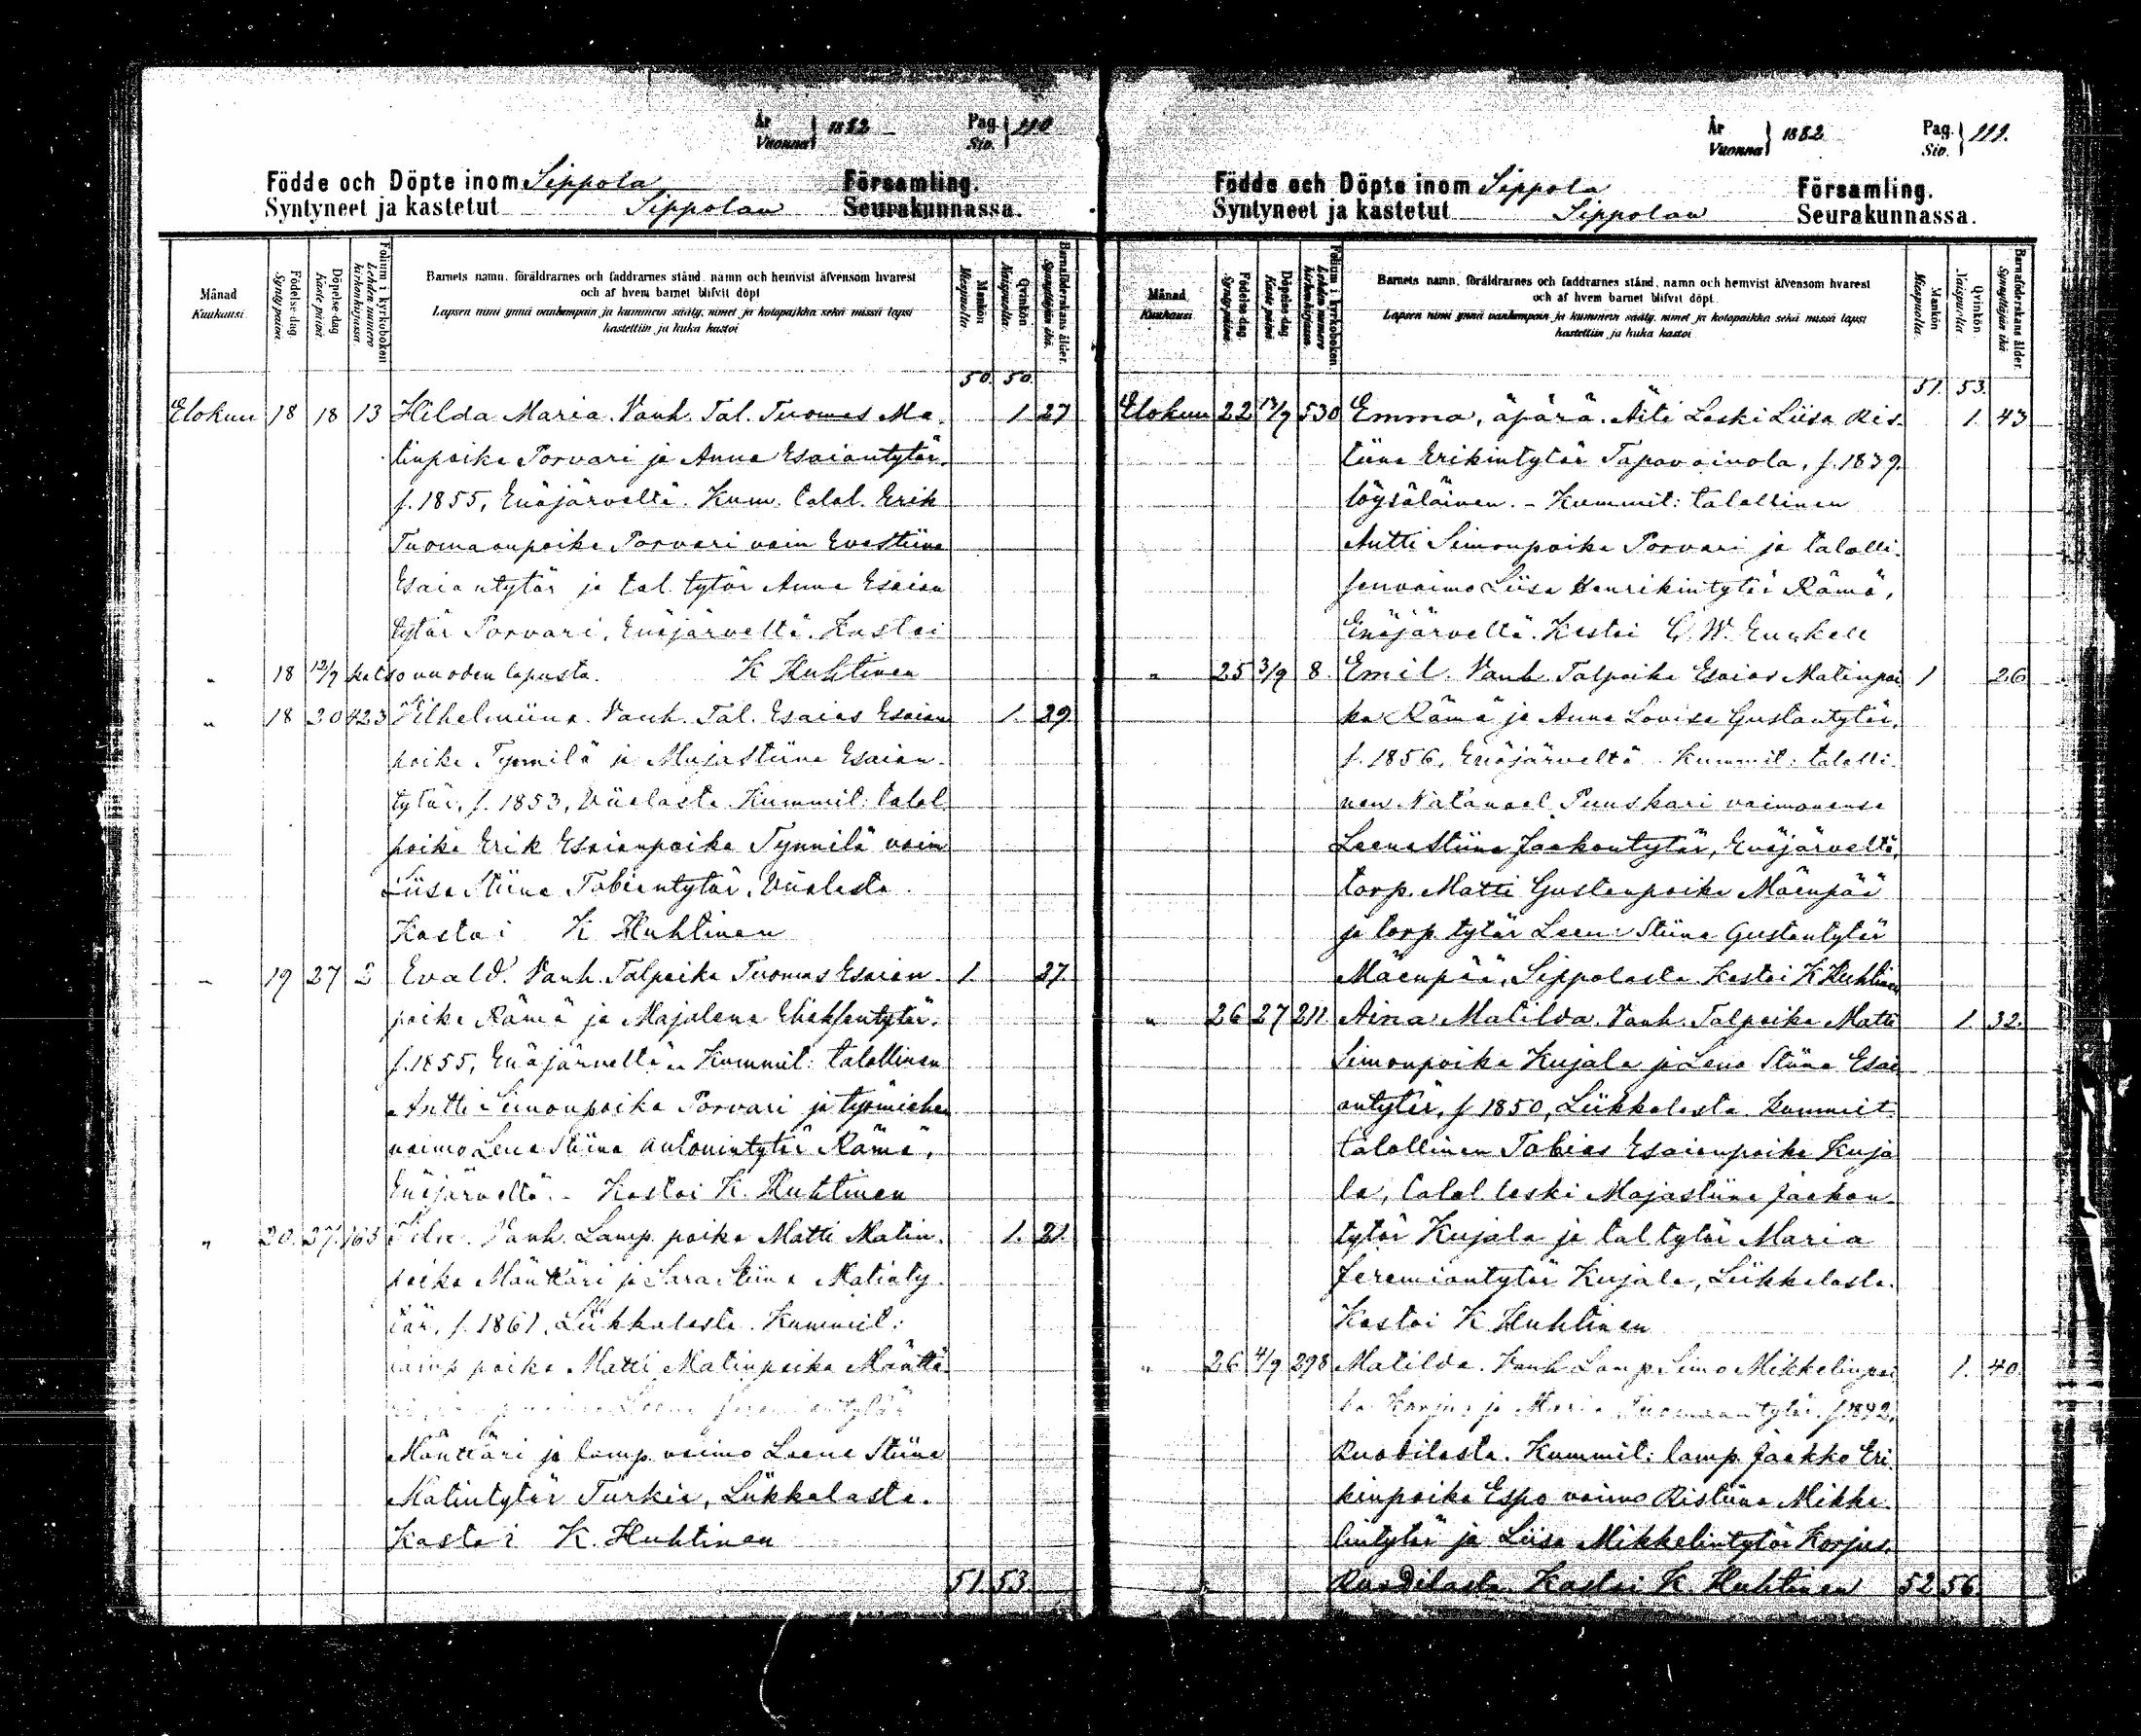 År
Vuonna } 1882
Pag.
Siv. } 110
Födde och Döpte inom Sippola Församling.
Syntyneet ja kastetut Sippolan Seurakunnassa.
Månad
Kuukausi
Födelse-dag.
Syntypäivä.
Döpelse-dag
Kaste päivä
Folium i kyrkoboken
Lehden numero kirkonkirjassa.
Barnets namn, föräldrarnes och faddrarnes stånd, namn och hemvist äfvensom hvarest
och af hvem barnet blifvit döpt
Lapsen nimi ynnä vanhempain ja kummein sääty, nimet ja kotopaikka sekä missä lapsi
kastettiin ja kuka kastoi
Mankön
Miespuolta.
Qvinkön
Naispuolta.
Barnaföderskans ålder.
Synnyttäjän ikä.
50. 50.
Elokuu 18 18 13 Hilda Maria. Vanh. Tal. Tuomas Ma- 1 27
tinpoika Porvari ja Anna Esaiantytär.
f. 1855, Enäjärveltä. Kum. talol. Erik
Tuomaanpoika Porvari vaim Evastiina
Esaiantytär ja tal. tytär Anna Esaian
tytär Porvari, Enäjärveltä. Kastoi
" 18 12/9 katso vuoden lopusta. K Huhtinen
" 18 20 423 Vilhelmiina. Vanh. Tal. Esaias Esaian 1. 29.
poika Tynnilä ja Majastiina Esaian-
tytär, f. 1853, Viialasta. Kummit: talol.
poika Erik Esaianpoika Tynnilä vaim
Liisa Stiina Tobiantytär, Viialasta.
Kastoi K Huhtinen
" 19 27 2 Evald. Vanh. Talpoika Tuomas Esaian- 1. 27.
poika Rämä ja Majalena
f. 1855, Enäjärveltä. Kummit: talollinen
Antti Simonpoika Porvari ja työmiehen
vaimo Lena Stiina Antonintytär Rämä,
Enäjärveltä. - Kastoi K. Huhtinen
" 20. 27. 163 Vanh. Lamp. poika Matti Matin- 1. 21.
poika Mänttäri ja Sara Stiina Matinty-
tär, f. 1861, Liikkalasta. Kummit:
lamp poika Matti Matinpoika Mänttä-
Leena Jeremiantytär
Mänttäri ja lamp. vaimo Leena Stiina
Matintytär Turkia, Liikkalasta.
Kastoi K. Huhtinen
51. 53.
År
Vuonna } 1882
Pag.
Siv. } 111.
Födde och Döpte inom Sippola Församling.
Syntyneet ja kastetut Sippolan Seurakunnassa.
Månad
Kuukausi
Födelse-dag.
Syntypäivä.
Döpelse-dag
Kaste päivä
Folium i kyrkoboken
Lehden numero kirkonkirjassa.
Barnets namn, föräldrarnes och faddrarnes stånd, namn och hemvist äfvensom hvarest
och af hvem barnet blifvit döpt.
Lapsen nimi ynnä vanhempain ja kummein sääty, nimet ja kotopaikka sekä missä lapsi
kastettiin ja kuka kastoi
Mankön
Miespuolta.
Qvinkön
Naispuolta.
Barnaföderskans ålder.
Synnyttäjän ikä
51. 53.
Elokuu 22 17/9 530 Emma, äpärä. Äiti Leski Liisa Ris- 1. 43
tiina Erikintytär Tapavainola, f. 1839.
löysäläinen. - Kummit: talollinen
Antti Simonpoika Porvari ja talolli-
senvaimo Liisa Henrikintytär Rämä,
Enäjärveltä. Kastoi C. W. Eunkell
" 25 3/9 8. Emil. Vanh. Talpoika Esaias Matinpoi 1 26
ka Rämä ja Anna Lovisa Gustantytär,
f. 1856, Enäjärveltä. Kummit: talolli-
nen Natanael Punskari vaimonensa
Leenastiina Jaakontytär, Enäjärveltä,
torp. Matti Gustanpoika Mäenpää
ja torp. tytär Leena Stiina Gustantytär
Mäenpää, Sippolasta. Kastoi K Huhtinen
" 26 27 211. Aina Matilda. Vanh. Talpoika Matti 1. 32.
Simonpoika Kujala ja Lena Stiina Esai
antytär, f. 1850, Liikkalasta. Kummit:
talollinen Tobias Esaianpoika Kuja
la, talol. leski Majastiina Jaakon-
tytär Kujala ja tal. tytär Maria
Jeremiantytär Kujala, Liikkalasta.
Kastoi K Huhtinen
" 26 4/9 298 Matilda. Vanh. Lamp. Simo Mikkelinpoi 1. 40.
ka Korjus ja Maria Tuomaantytär. f. 1842,
Ruotilasta. Kummit: lamp. Jaakko Eri-
kinpoika Espo vaimo Ristiina Mikke-
lintytär ja Liisa Mikkelintytär Korjus,
Ruotilasta. Kastoi K. Huhtinen 52 56.